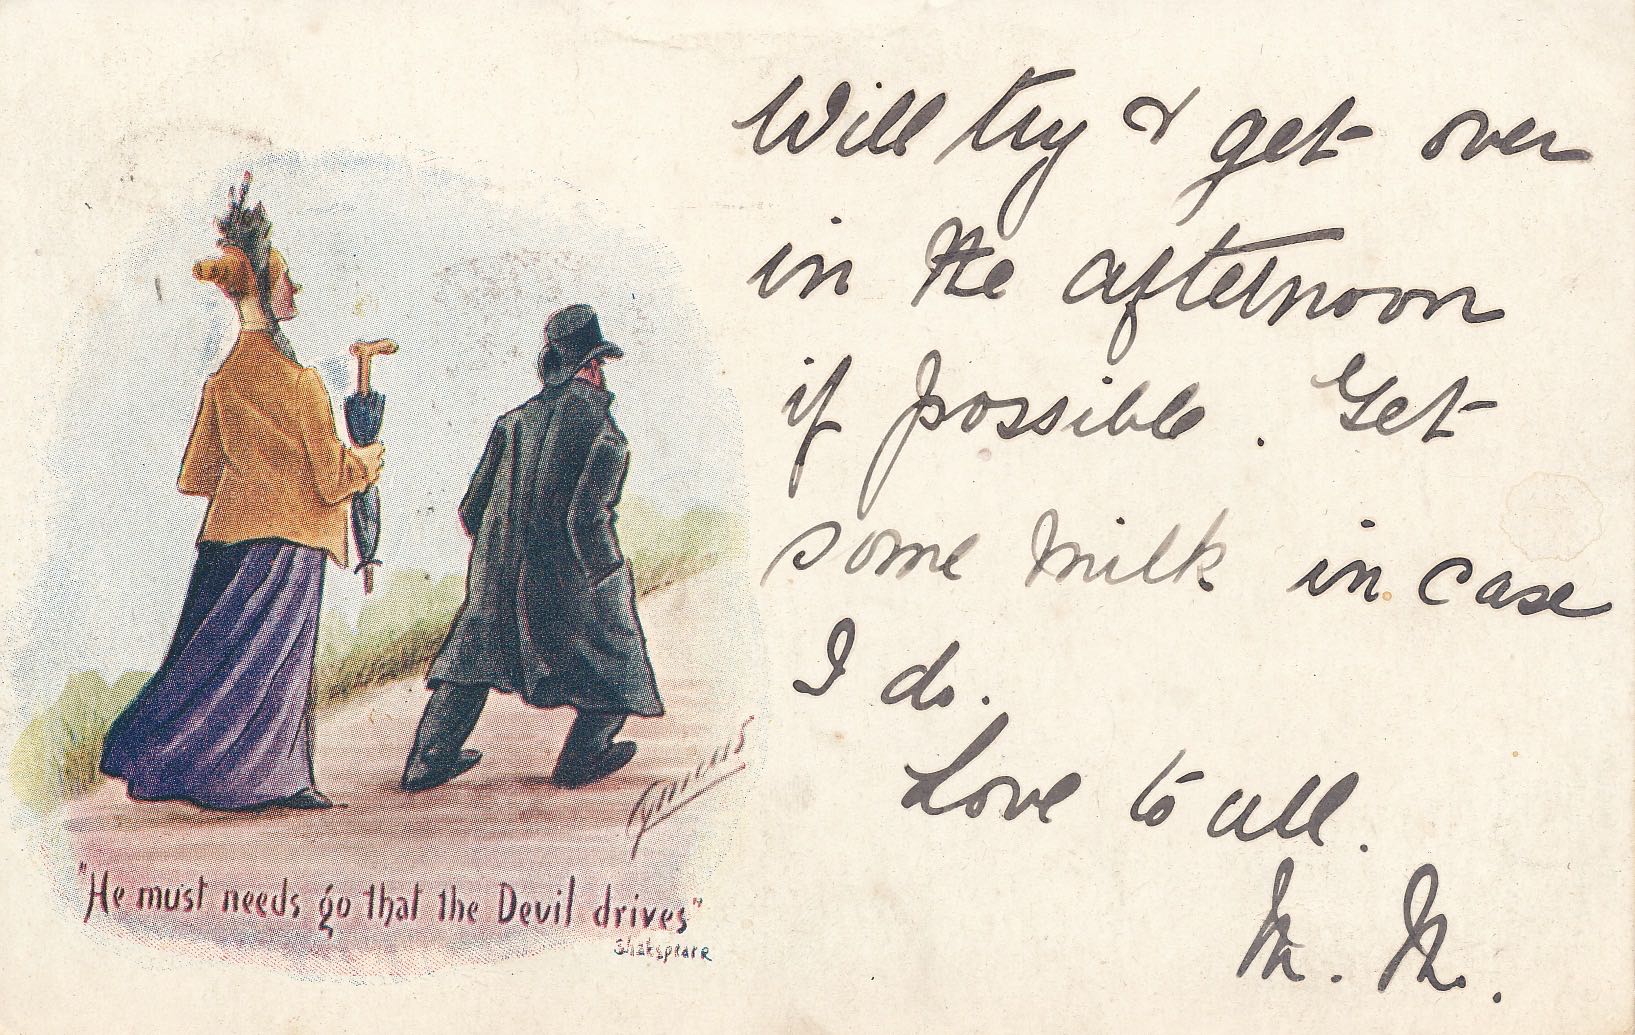 Will try & get over
in the afternoon
if possible. Get
some milk in case
I do.
Love to all.
M. M.
"He must needs go that the Devil drives"
Shakspeare